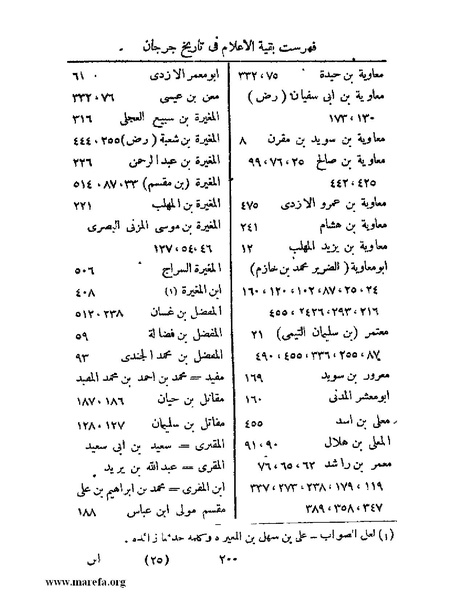 فهرست بقية الاعلام فى تاريخ جرجان
معاوية بن حيدة ٧٥، ٣٣٢
معاوية بن ابى سفيان (رض)
١٣٠، ١٧٣
معاوية بن سويد بن مقرن ٨
معاوية بن صالح ٢٥، ٧٦، ٩٩
٤٢٥، ٤٤٢
معاوية بن عمرو الازدى ٤٧٥
معاوية بن هشام ٢٤١
معاوية بن يزيد المهلب ١٢
ابو معاوية (الضرير محمد بن خازم)
٢٤، ٢٥، ٨٧، ١٠٢، ١٢٠، ١٦٠
٢١٦، ٢٩٣، ٢٤٣٦، ٤٥٥
معتمر (بن سليمان التيمى) ٢١
٨٧، ٢٥٥، ٣٣٦، ٤٥٥، ٤٩٠
معرور بن سويد ١٦٩
ابو معشر المدنى ١٦٠
معلى بن اسد ٤٥٥
المعلى بن هلال ٩٠، ٩١
معمر بن راشد ٦٢، ٦٥، ٧٦
١١٩، ١٧٩، ٢٣٨، ٢٧٣، ٣٣٧
٣٤٧، ٣٥٨، ٣٨٩
ابو معمر الازدى ٦١
معن بن عيسى ٧٦، ٣٣٢
المغيرة بن سبيع العجلى ٣١٦
المغيرة بن شعبة (رض) ٢٥٥، ٤٤٤
المغيرة بن عبد الرحمن ٢٢٦
المغيرة (بن مقسم) ٣٣، ٨٧، ٥١٤
المغيرة بن المهلب ٢٢١
المغيرة بن موسى المزنى البصرى
٤٦، ٥٤، ١٢٧
المغيرة السراج ٥٠٦
ابن المغيرة (١) ٤٠٨
المفضل بن غسان ٢٣٨، ٥١٢
المفضل بن فضالة ٥٩
المفضل بن محمد الجندى ٩٣
مفيد = محمد بن احمد بن محمد المفيد
مقاتل بن حيان ١٨٦، ١٨٧
مقاتل بن سليمان ١٢٧، ١٢٨
المقبرى = سعيد بن ابى سعيد
المقرى = عبدالله بن يزيد
ابن المقرى = محمد بن ابراهيم بن على
مقسم مولى ابن عباس ١٨٨
(١) لعل الصواب - على بن سهل بن المغيرة وكلمة حدثنا زائدة.
٢٠٠ (٢٥)
www.marefa.org